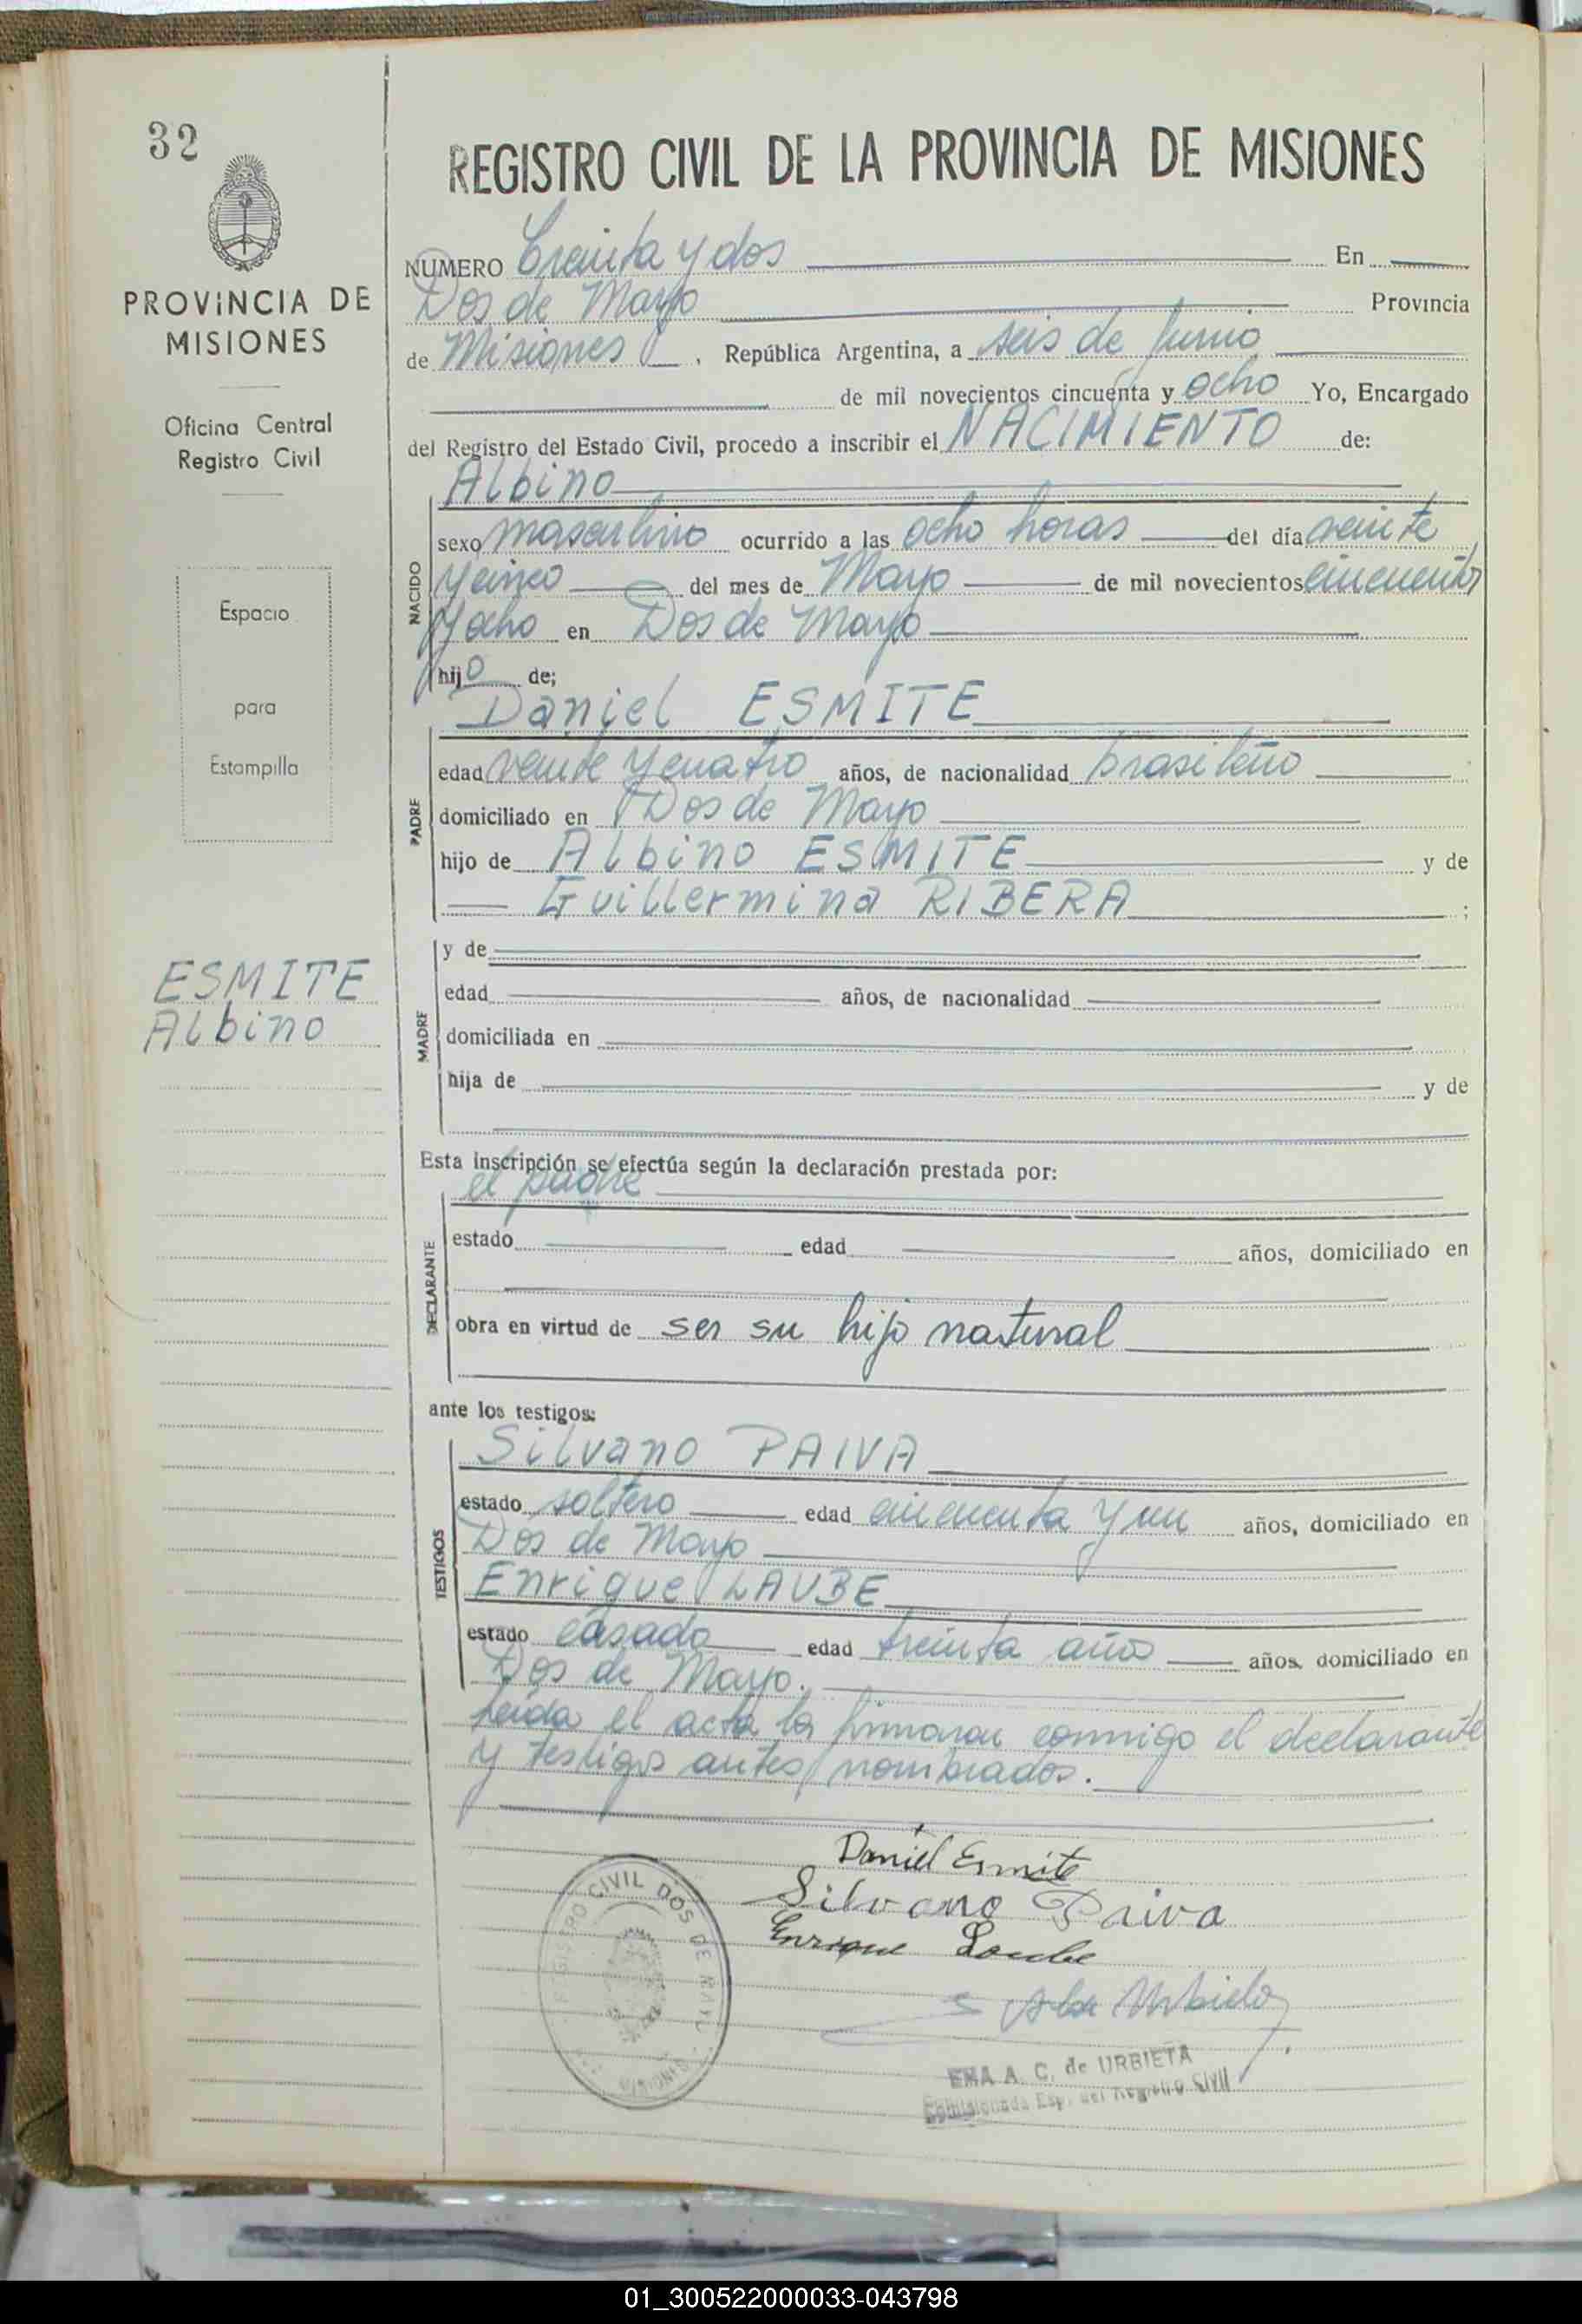 32
PROVINCIA DE
MISIONES
Oficina Central
Registro Civil
Espacio
para
Estampilla
ESMITE
Albino
REGISTRO CIVIL DE LA PROVINCIA DE MISIONES
NUMERO Treinta y dos En
Dos de Mayo Provincia
de Misiones, República Argentina, a seis de Junio
de mil novecientos cincuenta y ocho Yo, Encargado
del Registro del Estado Civil, procedo a inscribir el NACIMIENTO de:
Albino
NACIDO
sexo masculino ocurrido a las ocho horas del día veinte
y cinco del mes de Mayo de mil novecientos cincuenta
y ocho en Dos de Mayo
hijo de;
Daniel ESMITE
PADRE
edad veinte y cuatro años, de nacionalidad brasileño
domiciliado en Dos de Mayo
hijo de Albino ESMITE y de
Guillermina RIBERA ;
MADRE
y de
edad años, de nacionalidad
domiciliada en
hija de y de
Esta inscripción se efectúa según la declaración prestada por:
el padre
DECLARANTE
estado edad años, domiciliado en
obra en virtud de ser su hijo natural
ante los testigos:
TESTIGOS
Silvano PAIVA
estado soltero edad cincuenta y un años, domiciliado en
Dos de Mayo
Enrique LAUBE
estado casado edad treinta años años, domiciliado en
Dos de Mayo.
Leída el acta la firmaron conmigo el declarante
y testigos antes nombrados.
Daniel Esmite
Silvano Paiva
Enrique Laube
REGISTRO CIVIL DOS DE MAYO
EMA A. C. de URBIETA
Comisionada Esp. del Registro Civil
01_300522000033-043798